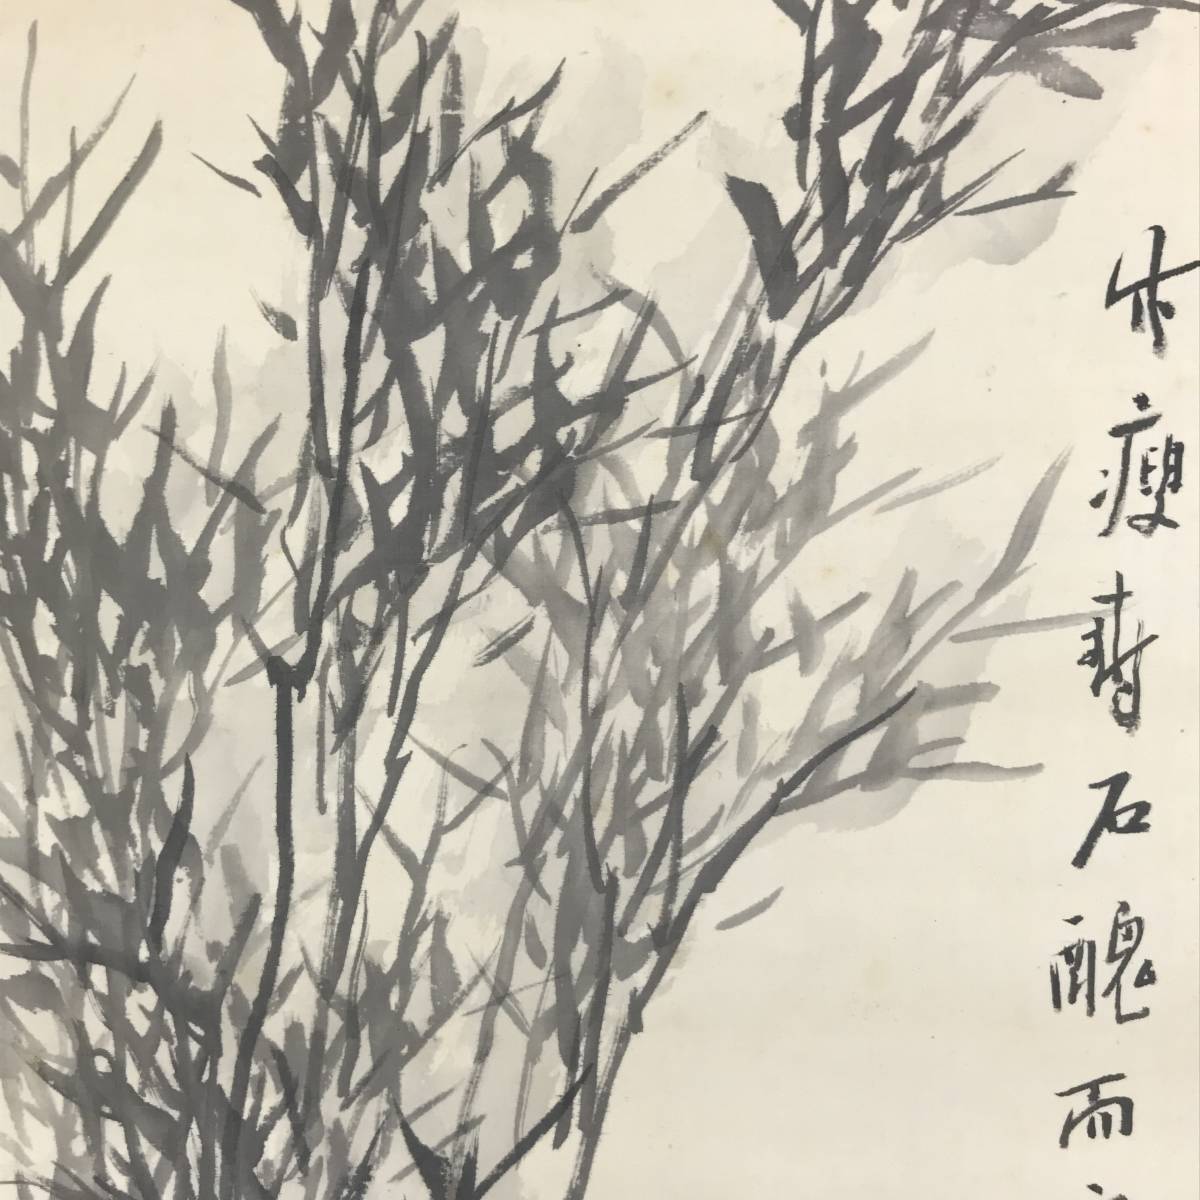 竹瘦壽石醜而